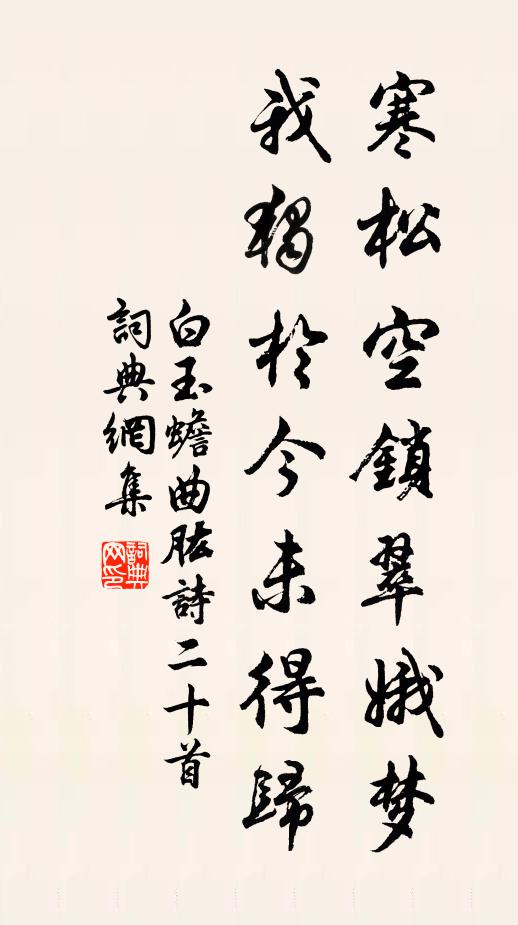 寒松空鎖翠娥梦
我獨於今未得歸
白玉蟾曲肱詩二十首
詞典網集
詞典網印